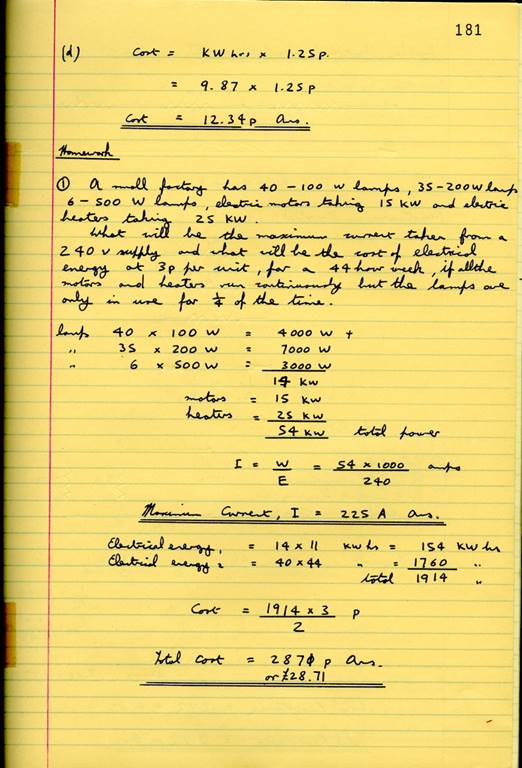 181
(d) Cost = KW hrs x 1.25p.
= 9.87 x 1.25p
Cost = 12.34p Ans.
Homework
① A small factory has 40 - 100 W lamps, 35 - 200W lamps
6 - 500 W lamps, electric motors taking 15 KW and electric
heaters taking 25 KW.
What will be the maximum current taken from a
240 v supply and what will be the cost of electrical
energy at 3p per unit, for a 44 hour week, if all the
motors and heaters run continuously but the lamps are
only in use for ¼ of the time.
lamps 40 x 100 W = 4000 W +
" 35 x 200 W = 7000 W
" 6 x 500 W = 3000 W
14 KW
motors = 15 KW
heaters = 25 KW
54 KW total power
I = W/E = 54 x 1000/240 amps
Maximum Current, I = 225 A Ans.
Electrical energy 1 = 14 x 11 KW hs = 154 KW hs
Electrical energy 2 = 40 x 44 " = 1760 "
total 1914 "
Cost = 1914 x 3/2 p
Total Cost = 2871 p Ans.
or £28.71